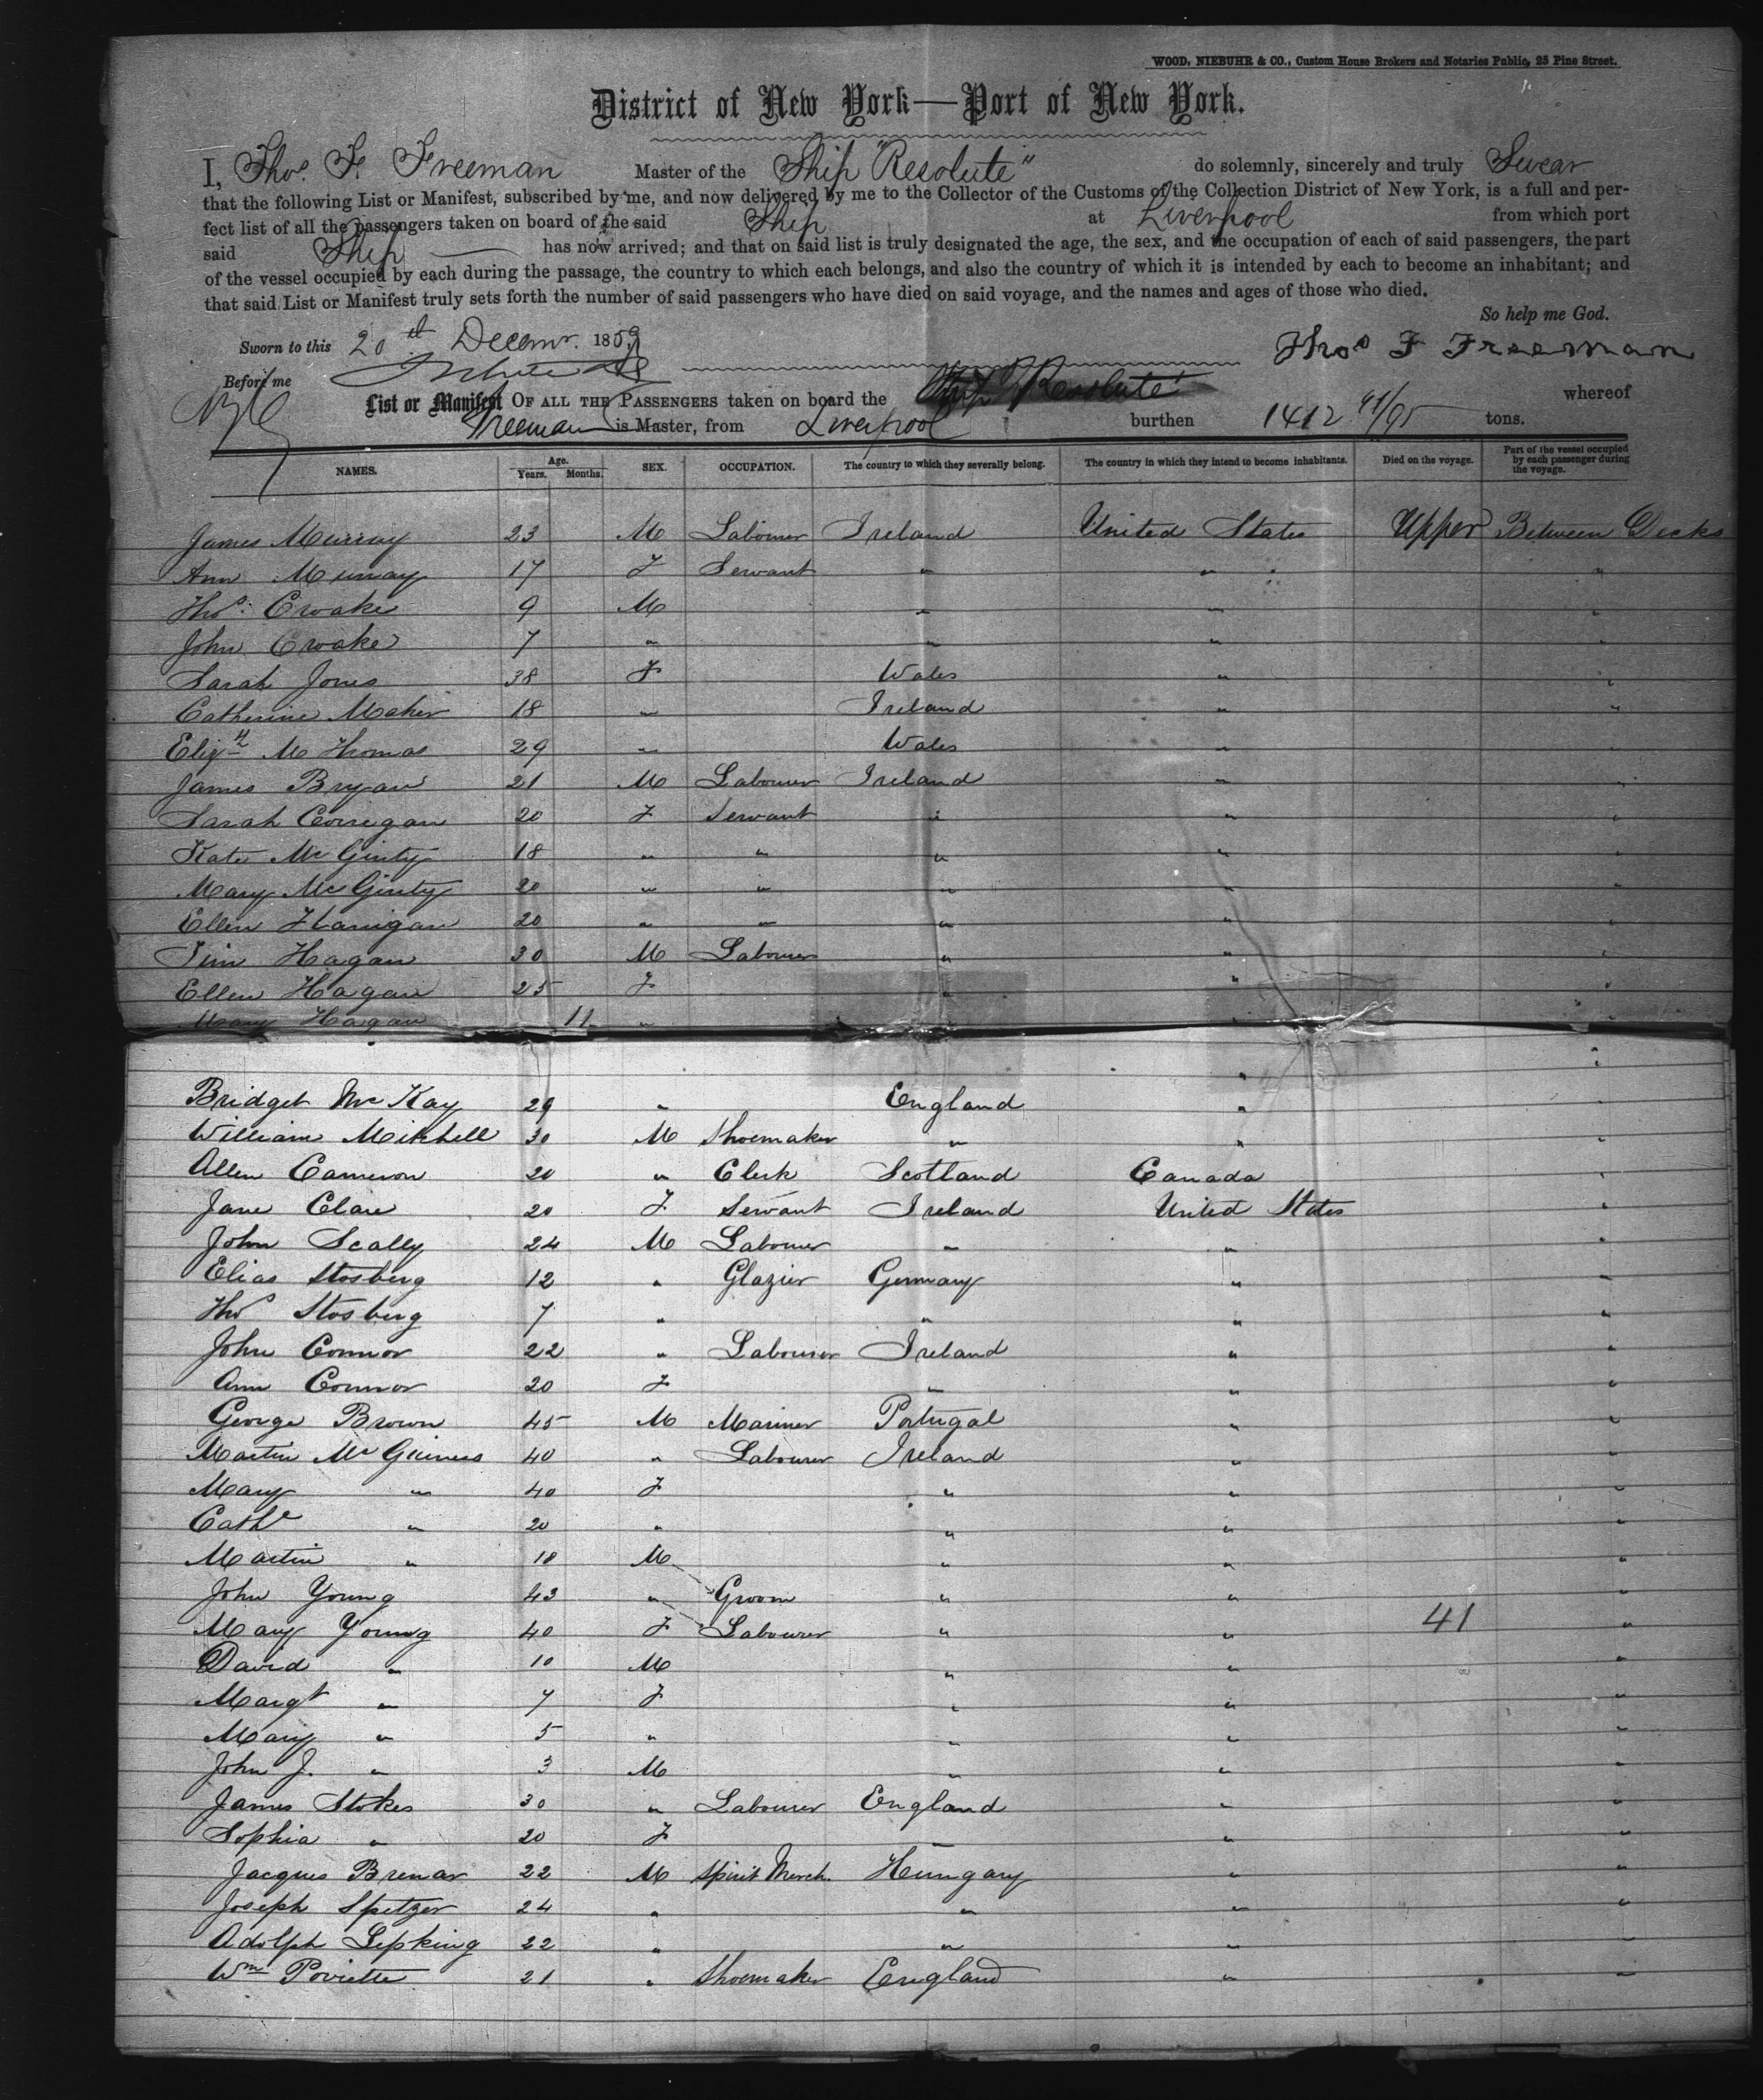 WOOD, NIEBUHR & CO., Custom House Brokers and Notaries Public, 25 Pine Street.
District of New York—Port of New York.
I, Thos. F. Freeman Master of the Ship "Resolute" do solemnly, sincerely and truly Swear
that the following List or Manifest, subscribed by me, and now delivered by me to the Collector of the Customs of the Collection District of New York, is a full and per-
fect list of all the passengers taken on board of the said Ship at Liverpool from which port
said Ship has now arrived; and that on said list is truly designated the age, the sex, and the occupation of each of said passengers, the part
of the vessel occupied by each during the passage, the country to which each belongs, and also the country of which it is intended by each to become an inhabitant; and
that said List or Manifest truly sets forth the number of said passengers who have died on said voyage, and the names and ages of those who died.
So help me God.
Sworn to this 20th Decemr. 1859 Thos F Freeman
Before me
List or Manifest OF ALL THE PASSENGERS taken on board the Ship Resolute whereof
Freeman is Master, from Liverpool burthen 1412 41/95 tons.
NAMES. Age. Years. Months. SEX. OCCUPATION. The country to which they severally belong. The country in which they intend to become inhabitants. Died on the voyage. Part of the vessel occupied by each passenger during the voyage.
James Murray 23 M Labourer Ireland United States Upper Between Decks
Ann Murray 17 F Servant " " "
Thos. Croake 9 M " " "
John Croake 7 " " " "
Sarah Jones 38 F Wales " "
Catherine Maher 18 " Ireland " "
Elizth M Thomas 29 " Wales "
James Bryan 21 M Labourer Ireland " "
Sarah Corregan 20 F Servant " " "
Kate McGinty 18 " " " " "
Mary McGinty 20 " " " " "
Ellen Flanigan 20 " " " " "
Tim Hagan 30 M Labourer " " "
Ellen Hagan 25 F " " "
Mary Hagan 11 " " "
Bridget McKay 29 " England " "
William Mitchell 30 M Shoemaker " " "
Allen Cameron 20 " Clerk Scotland Canada "
Jane Clare 20 F Servant Ireland United States "
John Scally 24 M Labourer " " "
Elias Stosberg 12 " Glazier Germany " "
Thos Stosberg 7 " " " "
John Connor 22 " Labourer Ireland " "
Ann Connor 20 F " " "
George Brown 45 M Mariner Portugal " "
Martin McGuiness 40 " Labourer Ireland " "
Mary " 40 F " " "
Cathe " 20 " " " "
Martin " 18 M " " "
John Young 43 " Groom " " "
Mary Young 40 F Labourer " " 41 "
David " 10 M " " "
Margt " 7 F " " "
Mary " 5 " " " "
John J. " 3 M " " "
James Stokes 30 " Labourer England " "
Sophia " 20 F " " "
Jacques Bremar 22 M Spirit Merch. Hungary " "
Joseph Spitzer 24 " " " "
Adolph Lepking 22 " " " "
Wm Poviette 21 " Shoemaker England " "